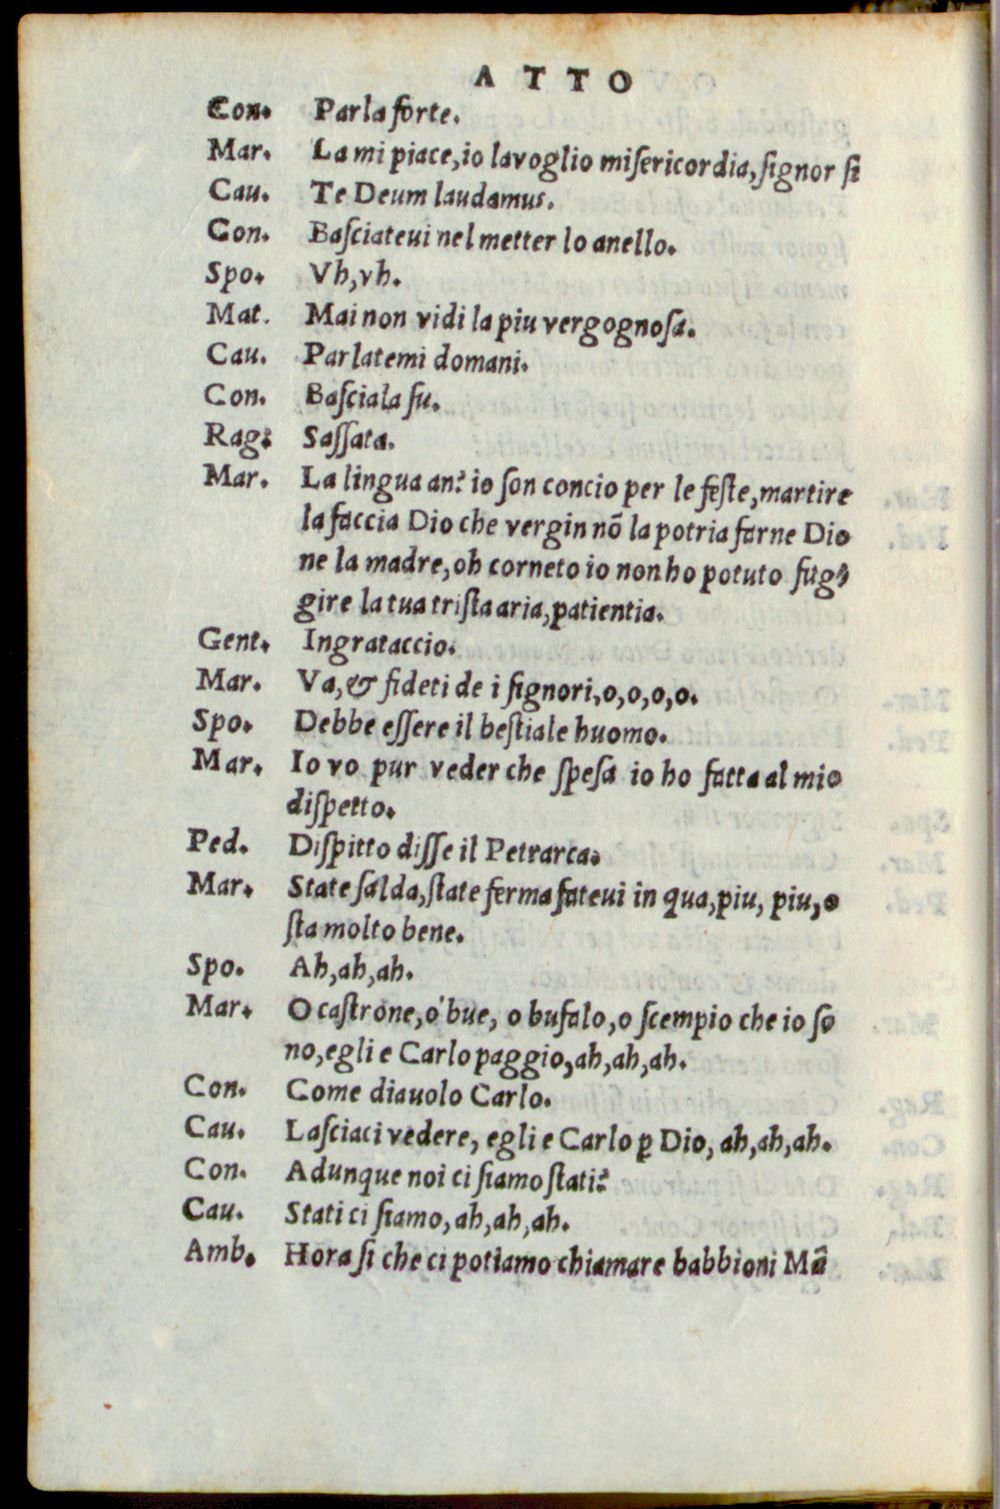 ATTO
Con. Parla forte.
Mar. La mi piace, io la voglio misericordia, signor si
Cau. Te Deum laudamus.
Con. Basciateui nel metter lo anello.
Spo. Vh, vh.
Mat. Mai non vidi la piu vergognosa.
Cau. Parlatemi domani.
Con. Basciala su.
Rag: Sassata.
Mar. La lingua an? io son concio per le feste, martire
la faccia Dio che vergin nõ la potria farne Dio
ne la madre, oh corneto io non ho potuto fug-
gire la tua trista aria, patientia.
Gent. Ingrataccio.
Mar. Va, & fideti de i signori, o, o, o, o.
Spo. Debbe essere il bestiale huomo.
Mar. Io vo pur veder che spesa io ho fatta al mio
dispetto.
Ped. Dispitto disse il Petrarca.
Mar. State salda, state ferma fateui in qua, piu, piu, o
sta molto bene.
Spo. Ah, ah, ah.
Mar. O castrone, o' bue, o bufalo, o scempio che io so
no, egli e Carlo paggio, ah, ah, ah.
Con. Come diauolo Carlo.
Cau. Lasciaci vedere, egli e Carlo ꝑ Dio, ah, ah, ah.
Con. Adunque noi ci siamo stati?
Cau. Stati ci siamo, ah, ah, ah.
Amb. Hora si che ci potiamo chiamare babbioni Mã